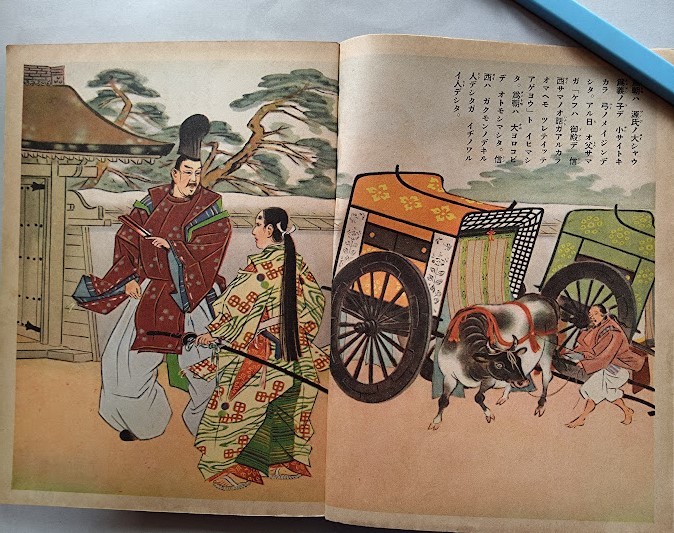 爲朝ハ 源氏ノ大シヤウ
爲義ノ子デ 小サイトキ
カラ 弓ノメイジンデ
シタ。アル日 オ父サマ
ガ「ケフハ 御殿デ 信
西サマノオ話ガアルカラ
オマヘモ ツレテイツテ
アゲヨウ」ト イヒマシ
タ 爲朝ハ 大ヨロコビ
デ オトモシマシタ。信
西ハ ガクモンノデキル
人デシタガ イヂノワル
イ人デシタ。